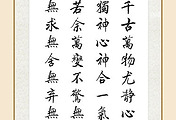 千古萬物尤靜心
獨神心神合一氣
若余萬變不驚無
無求無舍無弃無